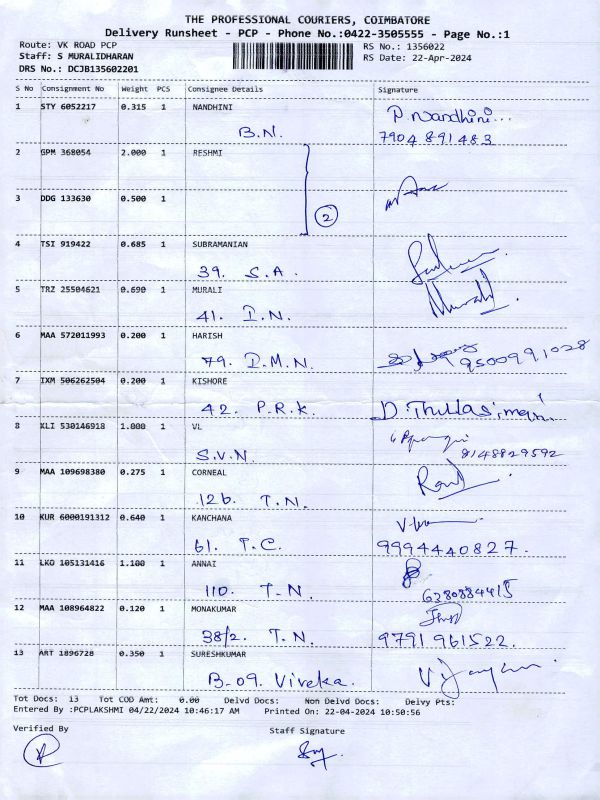 THE PROFESSIONAL COURIERS, COIMBATORE
Delivery Runsheet - PCP - Phone No.:0422-3505555 - Page No.:1
Route: VK ROAD PCP RS No.: 1356022
Staff: S MURALIDHARAN RS Date: 22-Apr-2024
DRS No.: DCJB135602201
S No Consignment No Weight PCS Consignee Details Signature
1 STY 6052217 0.315 1 NANDHINI P. Nandhini...
B.N. 7904891483
2 GPM 368054 2.000 1 RESHMI
3 DDG 133630 0.500 1
2
4 TSI 919422 0.685 1 SUBRAMANIAN
39. S.A.
5 TRZ 25504621 0.690 1 MURALI
41. I.N. Murali
6 MAA 572011993 0.200 1 HARISH
79. I.M.N. 9500991028
7 IXM 506262504 0.200 1 KISHORE
42. P.R.K. D. Thullasimani
8 KLI 530146918 1.000 1 VL
S.V.N. 8148829592
9 MAA 109698380 0.275 1 CORNEAL
126. T.N.
10 KUR 6000191312 0.640 1 KANCHANA
61. T.C. 9994440827.
11 LKO 105131416 1.100 1 ANNAI
110. T.N. 6380884415
12 MAA 108964822 0.120 1 MONAKUMAR
38/2. T.N. 9791961522.
13 ART 1896728 0.350 1 SURESHKUMAR
B-09. Viveka.
Tot Docs: 13 Tot COD Amt: 0.00 Delvd Docs: Non Delvd Docs: Delvy Pts:
Entered By :PCPLAKSHMI 04/22/2024 10:46:17 AM Printed On: 22-04-2024 10:50:56
Verified By Staff Signature